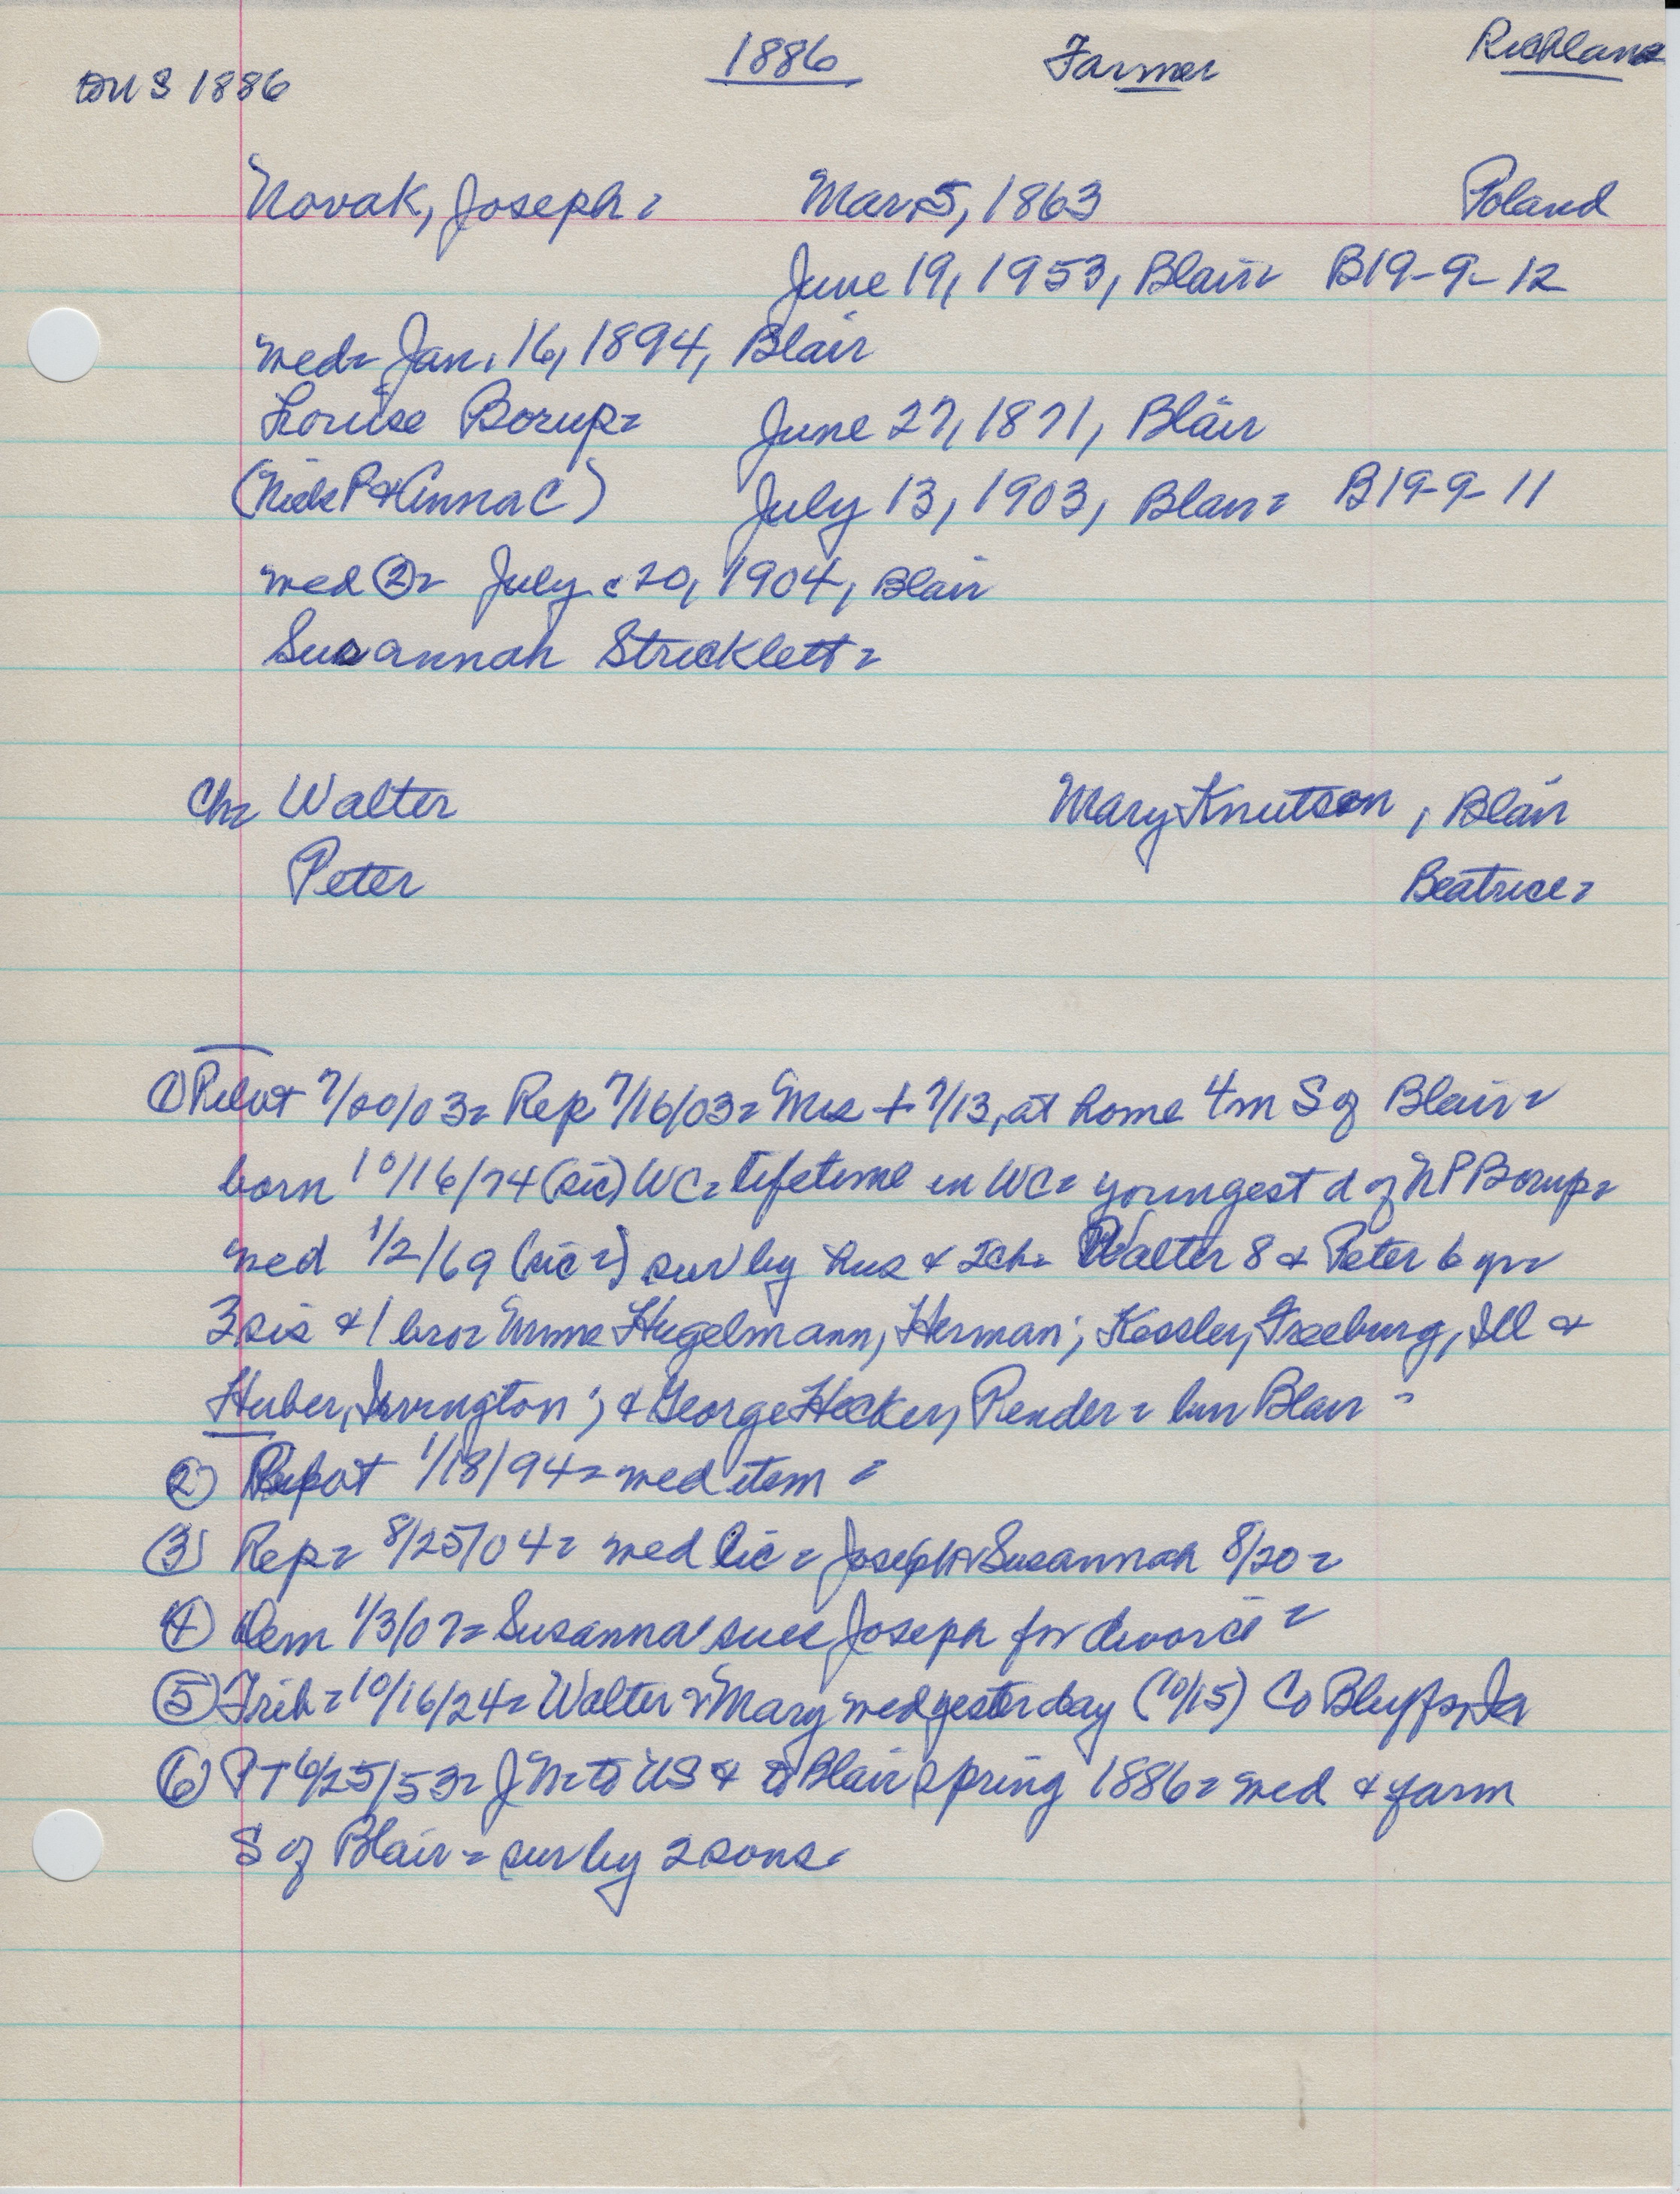 1886 Farmer Richland
S 1886
Novak, Joseph = Mar. 5, 1863 Poland
June 19, 1953, Blair = B19-9-12
med = Jan. 16, 1894, Blair
Louise Borup = June 27, 1871, Blair
(Nick P & Anna C) July 13, 1903, Blair = B19-9-11
med ② = July 20, 1904, Blair
Susannah Stricklett =
Ch = Walter Mary Knutson, Blair
Peter Beatrice =
① Pilot 7/ /03 = Rep 7/16/03 = Mrs + 7/13, at home 4m S of Blair =
born 10/16/74 (sic) WC = lifetime in WC = youngest d of NP Borup =
med 1/2/69 (sic =) sur by hus & 2 ch = Walter 8 & Peter 6 yr =
3 sis & 1 bro = Hugelmann, Herman; Kessler, Freeburg, Ill &
Huber, Irvington; & George Hecker, Render = bur Blair =
② 1/18/94 = med item =
③ Rep = 8/25/04 = med lic = Joseph & Susannah 8/20 =
④ Dem 1/3/07 = Susanna sues Joseph for divorce =
⑤ Trib = 10/16/24 = Walter & Mary med yesterday (10/15) Co Bluffs, Ia
⑥ PT 6/25/53 = JN = to US & to Blair spring 1886 = med & farm
S of Blair = sur by 2 sons.